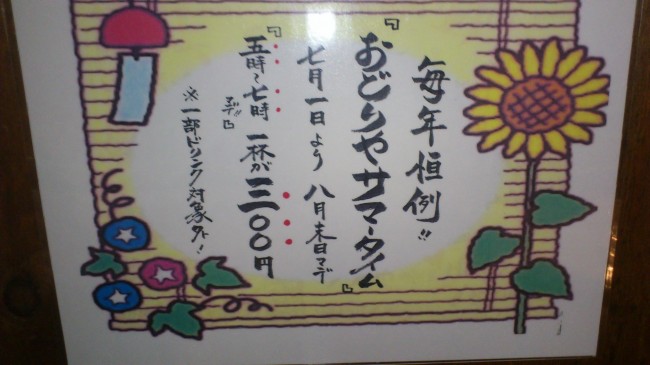 毎年恒例!!
『おどりやサマータイム』
七月一日より八月末日マデ
『五時~七時マデ!!』一杯が三〇〇円
※一部ドリンク対象外!